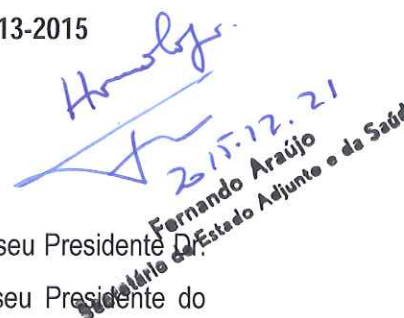 13-2015
Homologo.
2015.12.21
Fernando Araújo
Secretário de Estado Adjunto e da Saúd
seu Presidente Dr.
seu Presidente do